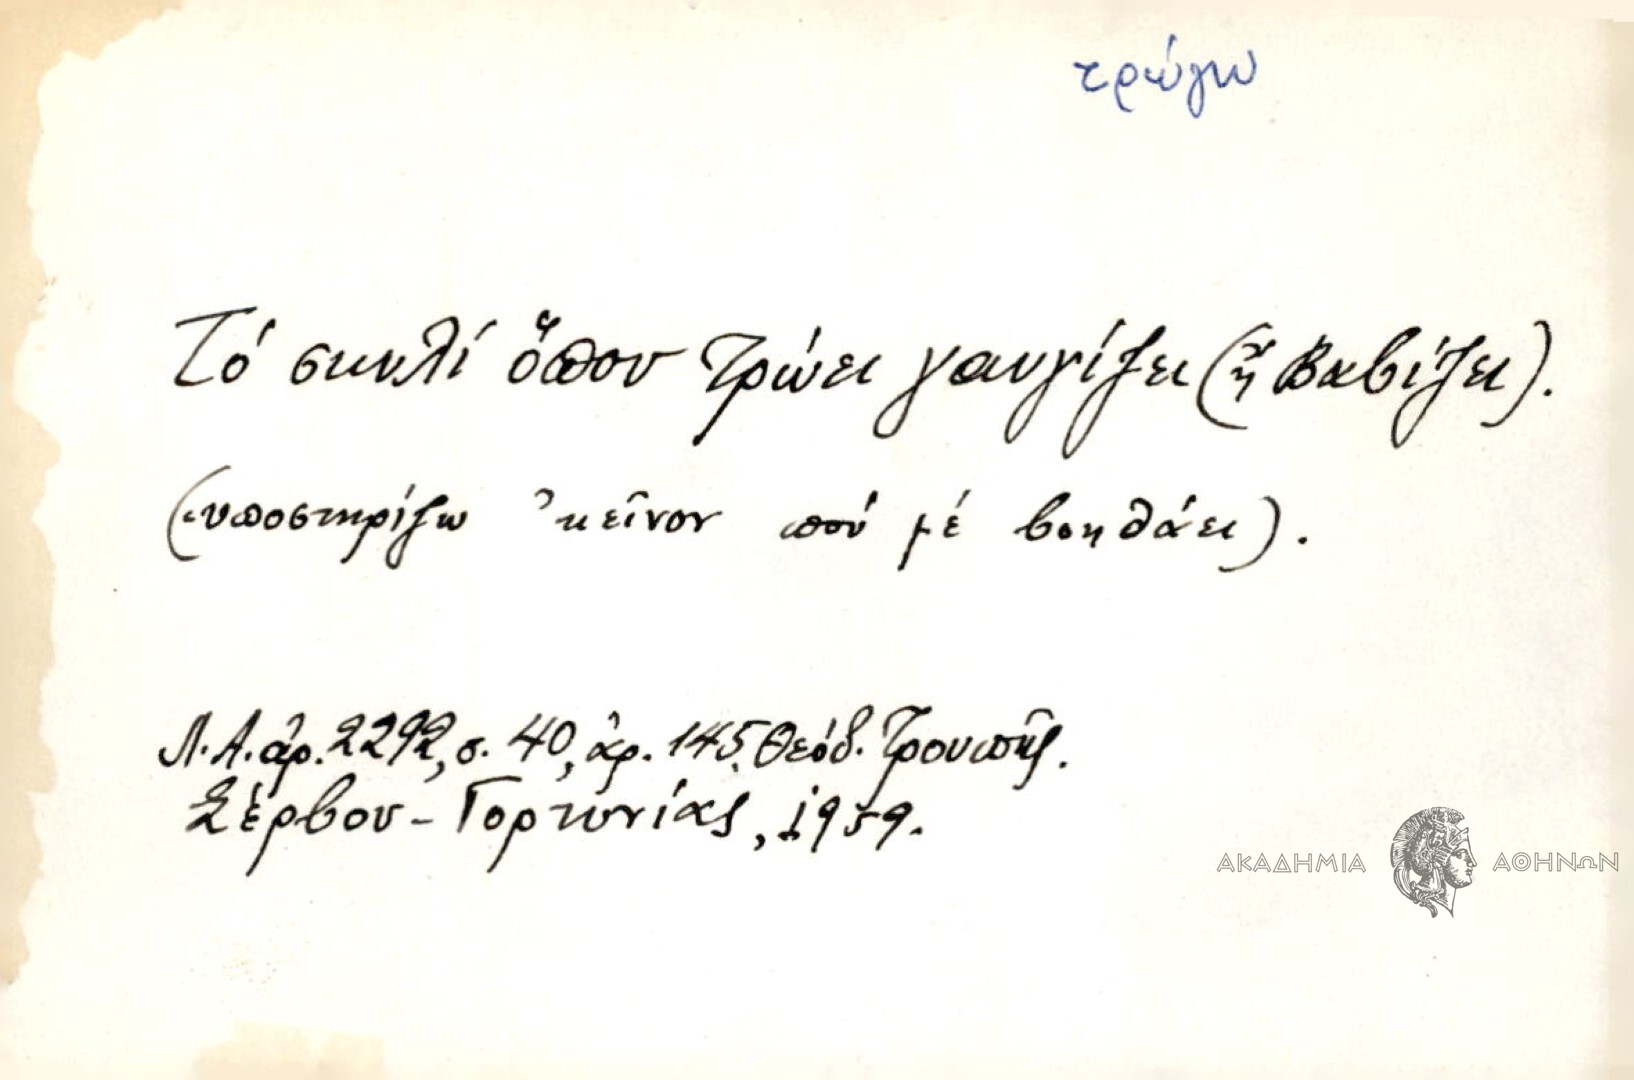 τρώγω
Τό σκυλί ὅπου τρώει γαυγίζει (ἤ βαβίζει).
(ὑποστηρίζω ᾿κεῖνον πού μέ βοηθάει).
Λ.Α. ἀρ. 2292, σ. 40, ἀρ. 145, Θεόδ. Τρουπῆς.
Σέρβου - Γορτυνίας, 1959.
ΑΚΑΔΗΜΙΑ ΑΘΗΝΩΝ